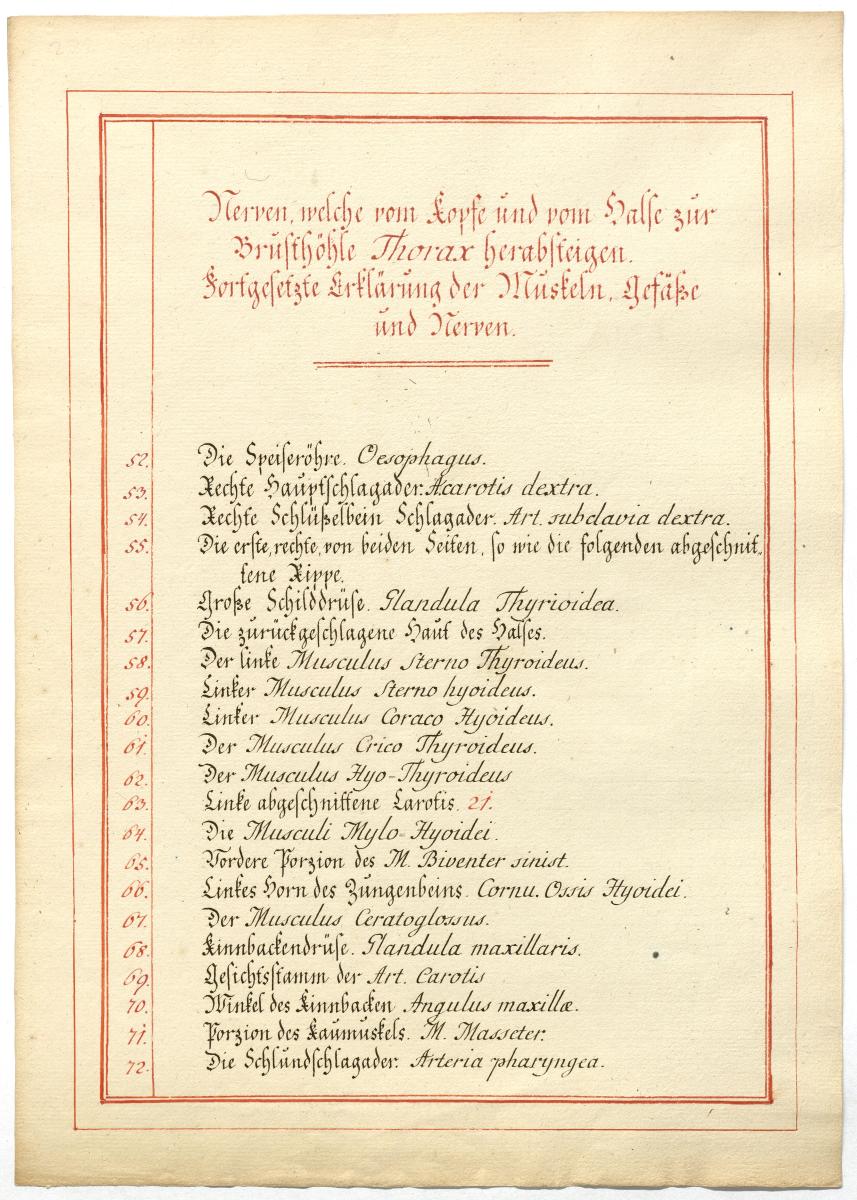 Nerven, welche vom Kopfe und vom Halse zur
Brusthöhle Thorax herabsteigen.
Fortgesetzte Erklärung der Muskeln, Gefäße
und Nerven.
52. Die Speiseröhre. Oesophagus.
53. Rechte Hauptschlagader. Acarotis dextra.
54. Rechte Schlüßelbein Schlagader. Art. subclavia dextra.
55. Die erste, rechte, von beiden Seiten, so wie die folgenden abgeschnit-
tene Rippe.
56. Große Schilddrüse. Glandula Thyrioidea.
57. Die zurückgeschlagene Haut des Halses.
58. Der linke Musculus Sterno Thyroideus.
59. Linker Musculus Sterno hyoideus.
60. Linker Musculus Coraco Hyoideus.
61. Der Musculus Crico Thyroideus.
62. Der Musculus Hyo-Thyroideus
63. Linke abgeschnittene Carotis. 21.
64. Die Musculi Mylo-Hyoidei.
65. Vordere Porzion des M. Biventer sinist.
66. Linkes Horn des Zungenbeins. Cornu. Ossis Hyoidei.
67. Der Musculus Ceratoglossus.
68. Kinnbackendrüse. Glandula maxillaris.
69. Gesichtsstamm der Art. Carotis
70. Winkel des Kinnbacken Angulus maxillæ.
71. Porzion des Kaumuskels. M. Masseter.
72. Die Schlundschlagader. Arteria pharyngea.